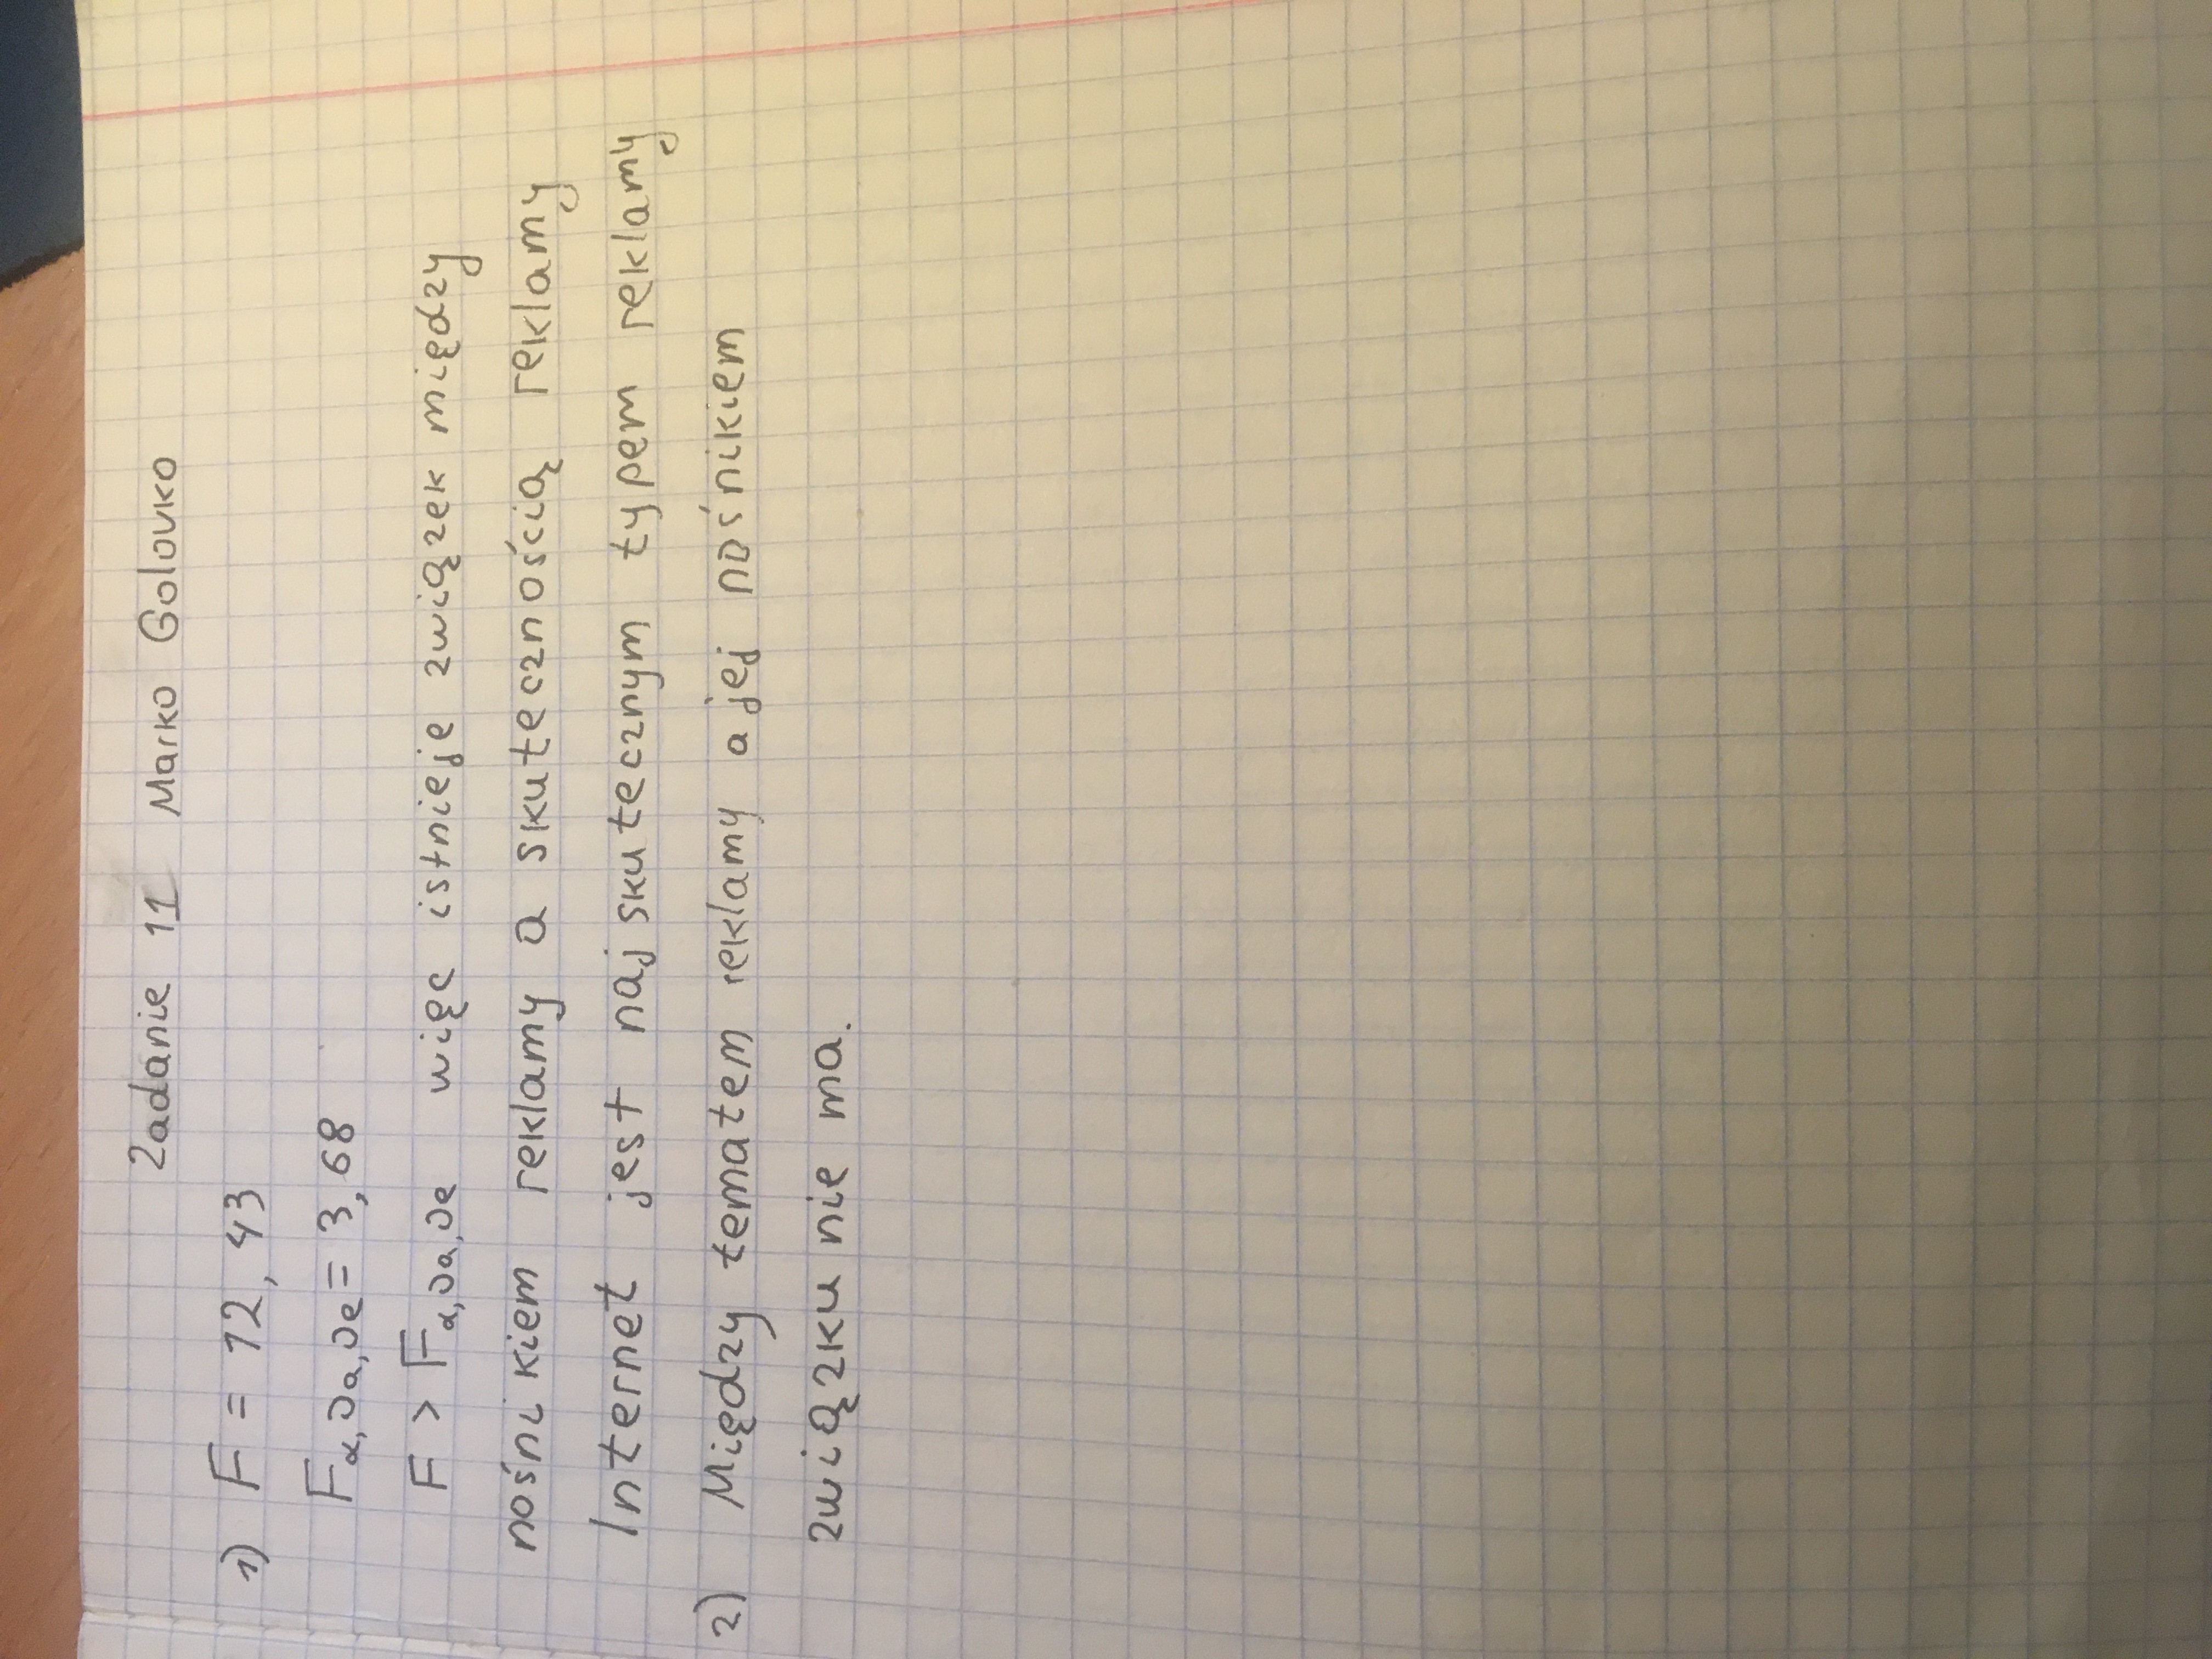 Zadanie 11 Marko Golovko
1) F = 12,43
Fα,υa,υe = 3,68
F > Fα,υa,υe więc istnieje związek między
nośnikiem reklamy a skutecznością reklamy
Internet jest najskutecznym typem reklamy
2) Między tematem reklamy a jej nośnikiem
związku nie ma.